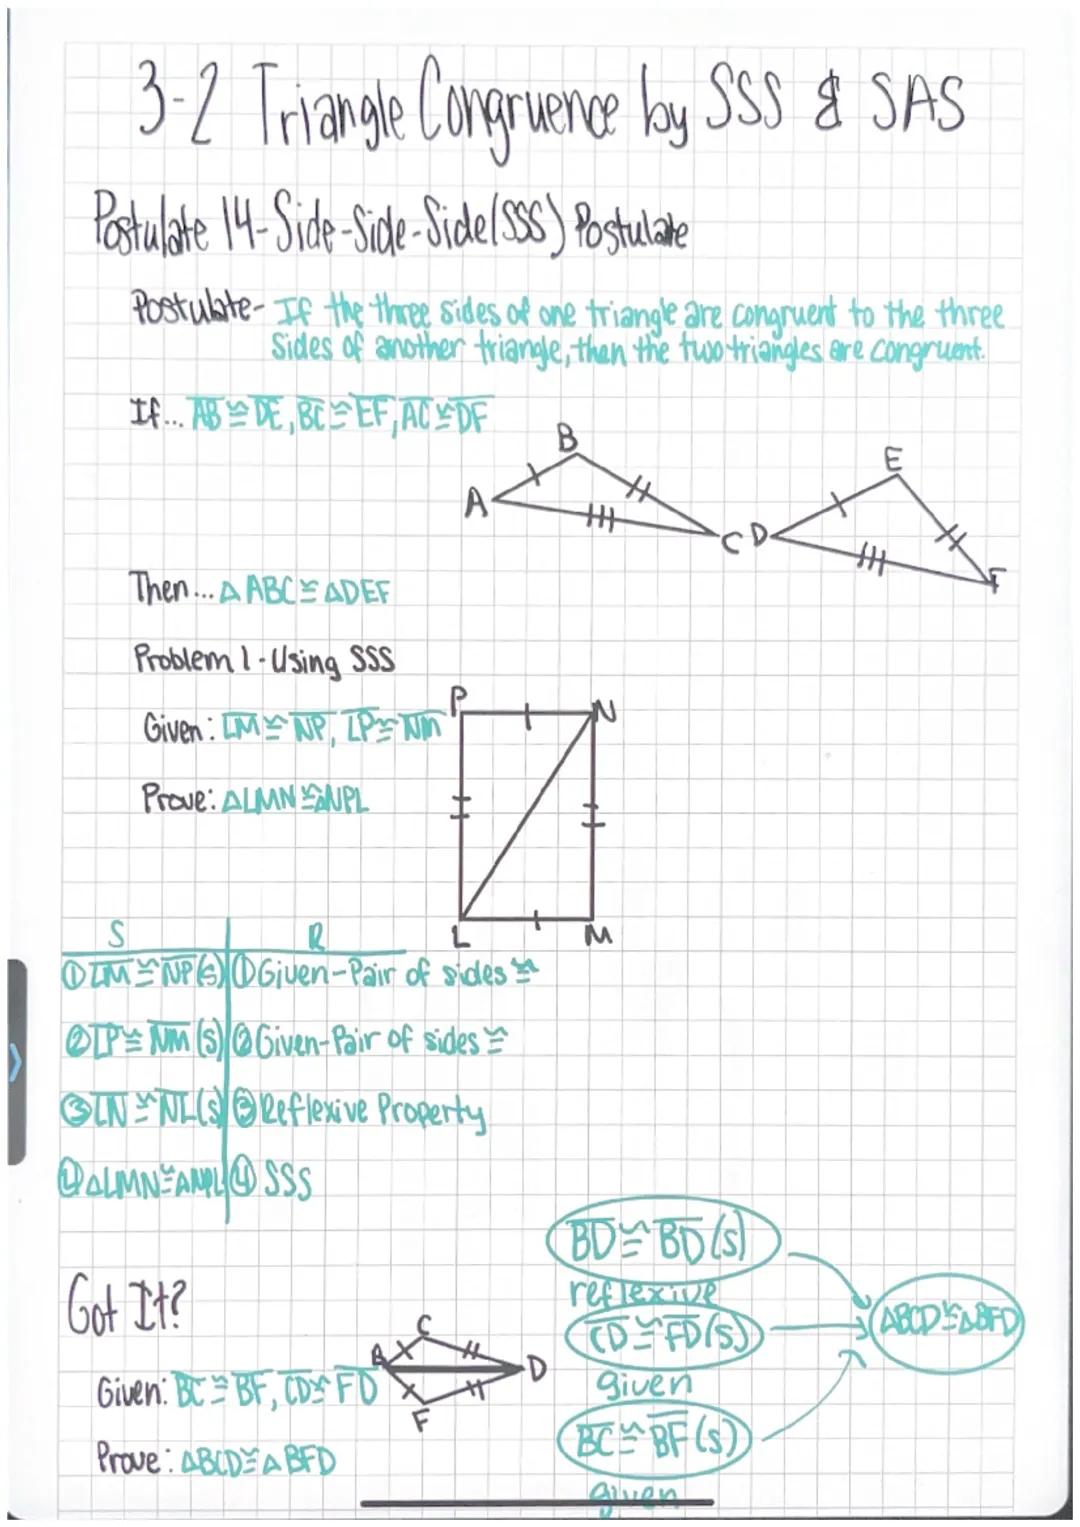 3-2 Triangle Congruence by SSS & SAS
Postulate 14-Side-Side-Side(SSS) Postulate
Postulate- If the three sides of one triangle are congruent to the three
sides of another triangle, then the two triangles are congruent.
If... AB ≅ DE, BC ≅ EF, AC ≅ DF
B
E
A
C
D
F
Then... △ABC ≅ △DEF
Problem 1-Using SSS
P
N
Given: LM ≅ NP, LP ≅ NM
Prove: △LMN ≅ △NPL
L
M
S R
① LM ≅ NP(S) ① Given-Pair of sides ≅
② LP ≅ NM (S) ② Given-Pair of sides ≅
③ LN ≅ NL(S) ③ Reflexive Property
④ △LMN ≅ △NPL ④ SSS
BD ≅ BD (S)
reflexive
Got It?
CD ≅ FD(S)
△BCD ≅ △BFD
C
D
F
given
Given: BC ≅ BF, CD ≅ FD
BC ≅ BF (S)
Prove: △BCD ≅ △BFD
given